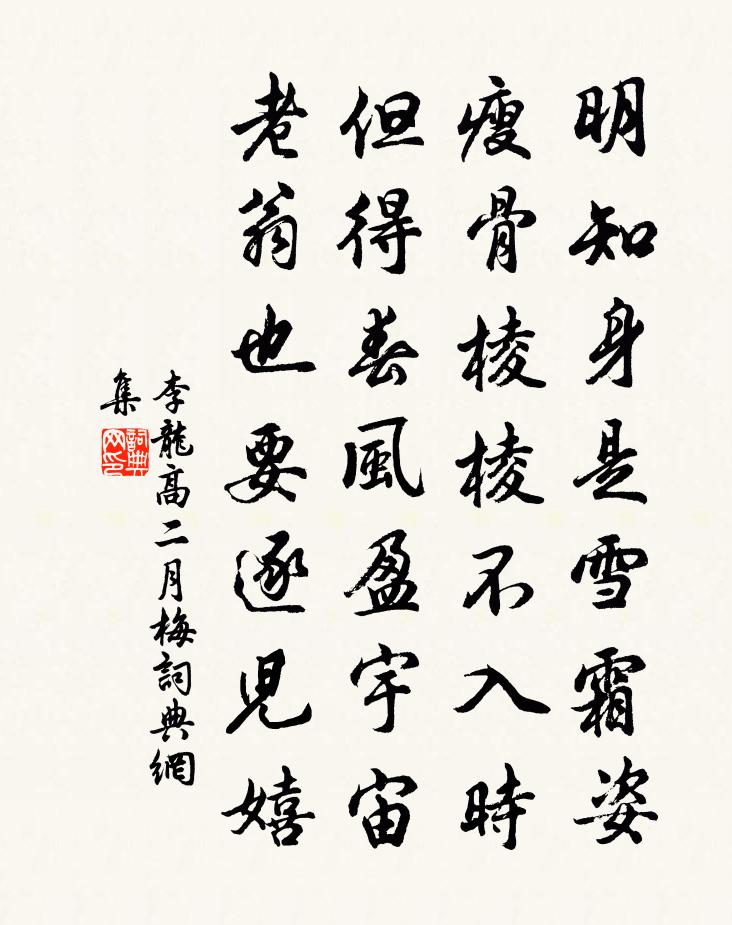 明知身是雪霜姿
瘦骨棱棱不入時
但得春風盈宇宙
老翁也要逐兒嬉
李龍高二月梅詞典網
集
詞典网印